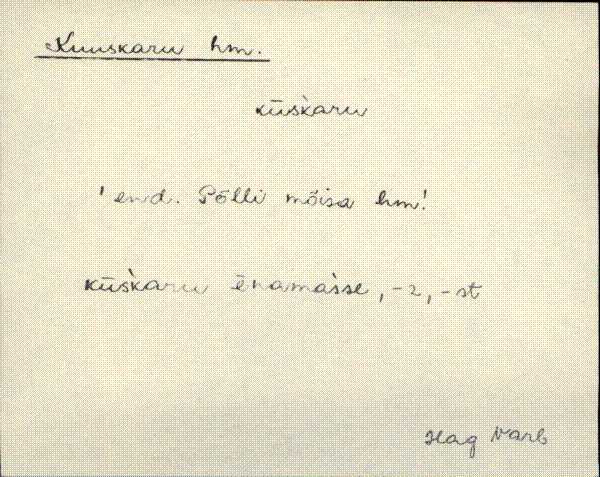 Kuuskaru hm.
kūs̀karu
' end. Põlli mõisa hm!
kūs̀karu ēnamàsse, -z, -st
Hag Varb